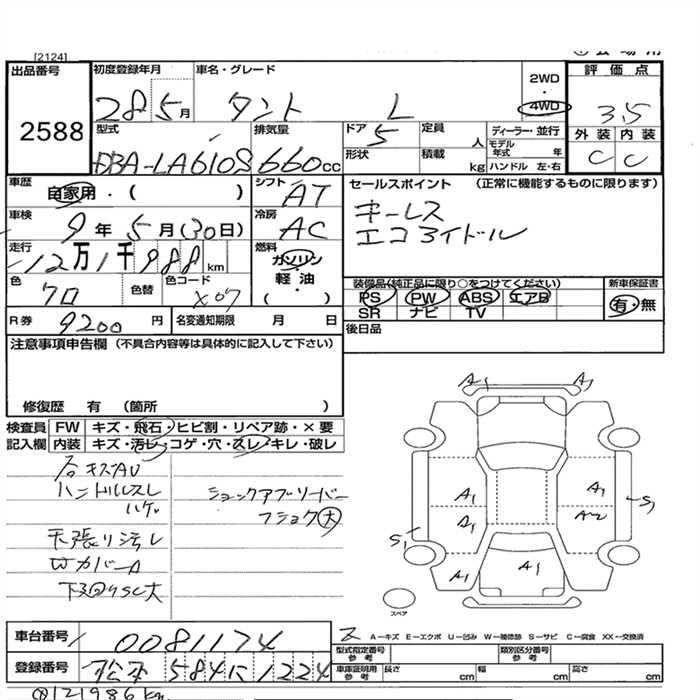 [2124]
出品番号
2588
初度登録年月
28 5月
車名・グレード
タント L
2WD
・
4WD
評価点
3.5
外装 内装
C C
型式
DBA-LA610S
排気量
660cc
ドア
5
定員
人
ディーラー・並行
モデル年式 年
形状
積載
kg
ハンドル 左・右
車歴
自家用・( )
シフト
AT
セールスポイント (正常に機能するものに限ります)
キーレス
エコアイドル
車検
9年 5月(30日)
冷房
AC
走行
12万1千988km
燃料
ガソリン
・
軽油
( )
色
クロ
色替
色コード
X07
装備品(純正品に限り○をつけてください)
PS PW ABS エアB
SR ナビ TV
新車保証書
有・無
R券
9200円
名変通知期限 月 日
後日品
注意事項申告欄 (不具合内容等は具体的に記入して下さい)
修復歴 有 (箇所 )
検査員
記入欄
FW キズ・飛石・ヒビ割・リペア跡・×要
内装 キズ・汚レ・コゲ・穴・スレ・キレ・破レ
ハンドルスレ
ハゲ
天張り汚レ
Wカバー
下回りSC大
ショックアブソーバー
フショク大
A1 A1
A1 A1
A1 A2
S1 S1
A1 A1
スペア
A－キズ E－エクボ U－凹み W－補修跡 S－サビ C－腐食 XX－交換済
車台番号
0081174
登録番号
松本 584 に 1224
型式指定番号
参考
類別区分番号
参考
車庫証明用
参考
長さ cm 幅 cm 高さ cm
121986km